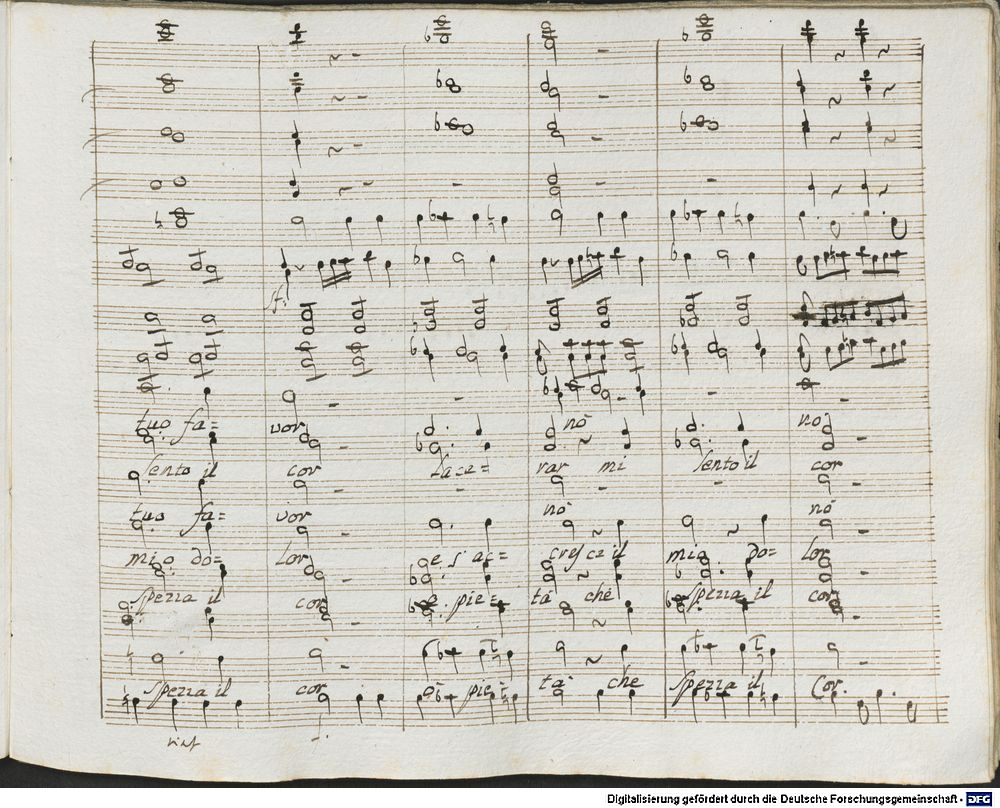 sf.
tuo fa= vor nò nò
sento il cor lace= rar mi sento il cor
tuo fa= vor nò nò
mio do= lor e s'ac= cresce il mio do= lor
spezza il cor e pie= tà che spezza il cor
spezza il cor e pie= tà che spezza il Cor.
rinf
f.
Digitalisierung gefördert durch die Deutsche Forschungsgemeinschaft - DFG